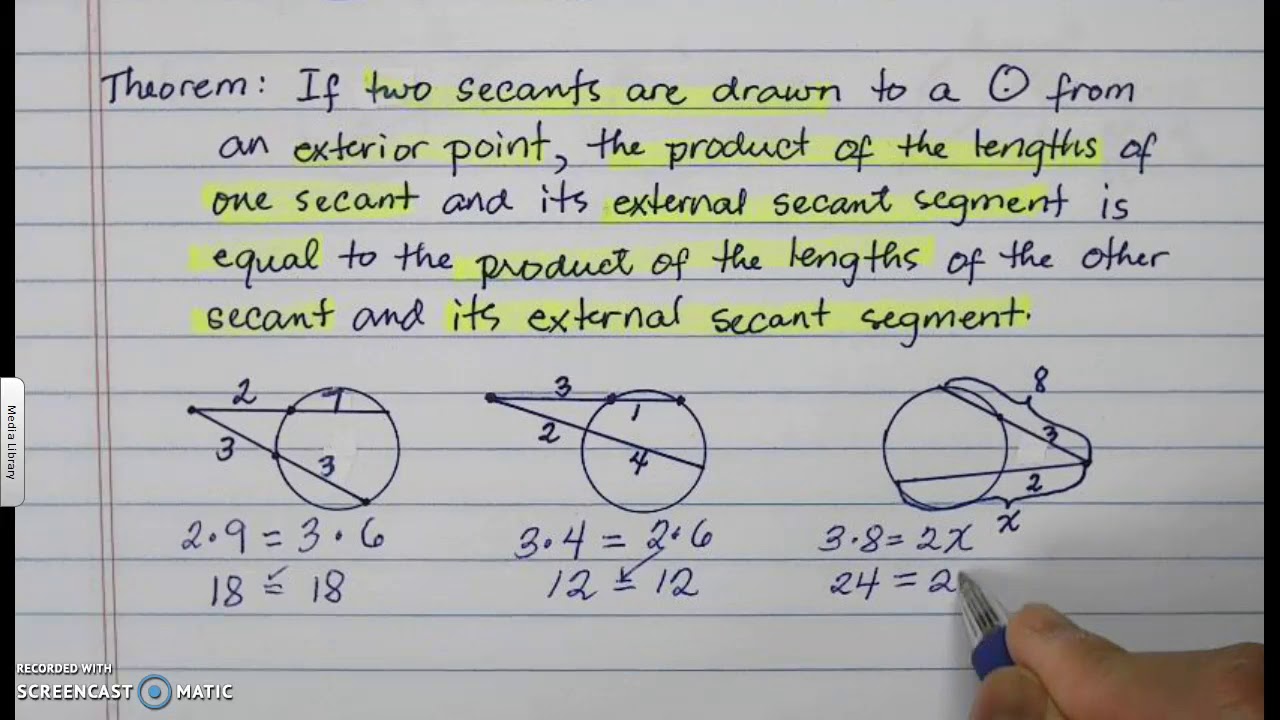 Theorem: If two secants are drawn to a ⊙ from
an exterior point, the product of the lengths of
one secant and its external secant segment is
equal to the product of the lengths of the other
secant and its external secant segment.
2 7
3 3
2·9 = 3·6
18 = 18
3 1
2 4
3·4 = 2·6
12 = 12
8
3
2
x
3·8 = 2x
24 = 2
Media Library
RECORDED WITH
SCREENCAST MATIC